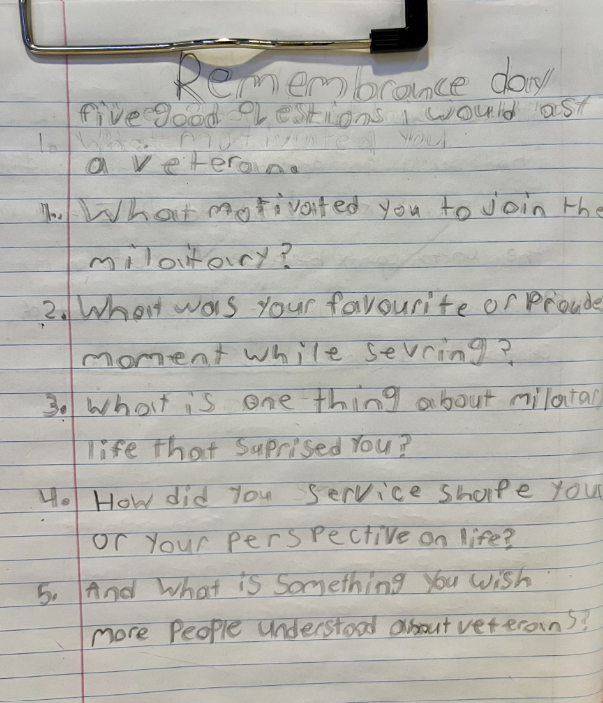 Remembrance day
five good questions i would ast
1. What motivated you
a veteran.
1. What motivated you to join the
milaitary?
2. What was your favourite or Proude
moment while sevring?
3. What is one thing about milatar
life that suprised You?
4. How did You service shape you
or your perspective on life?
5. And What is something You wish
more People understood about veterans?